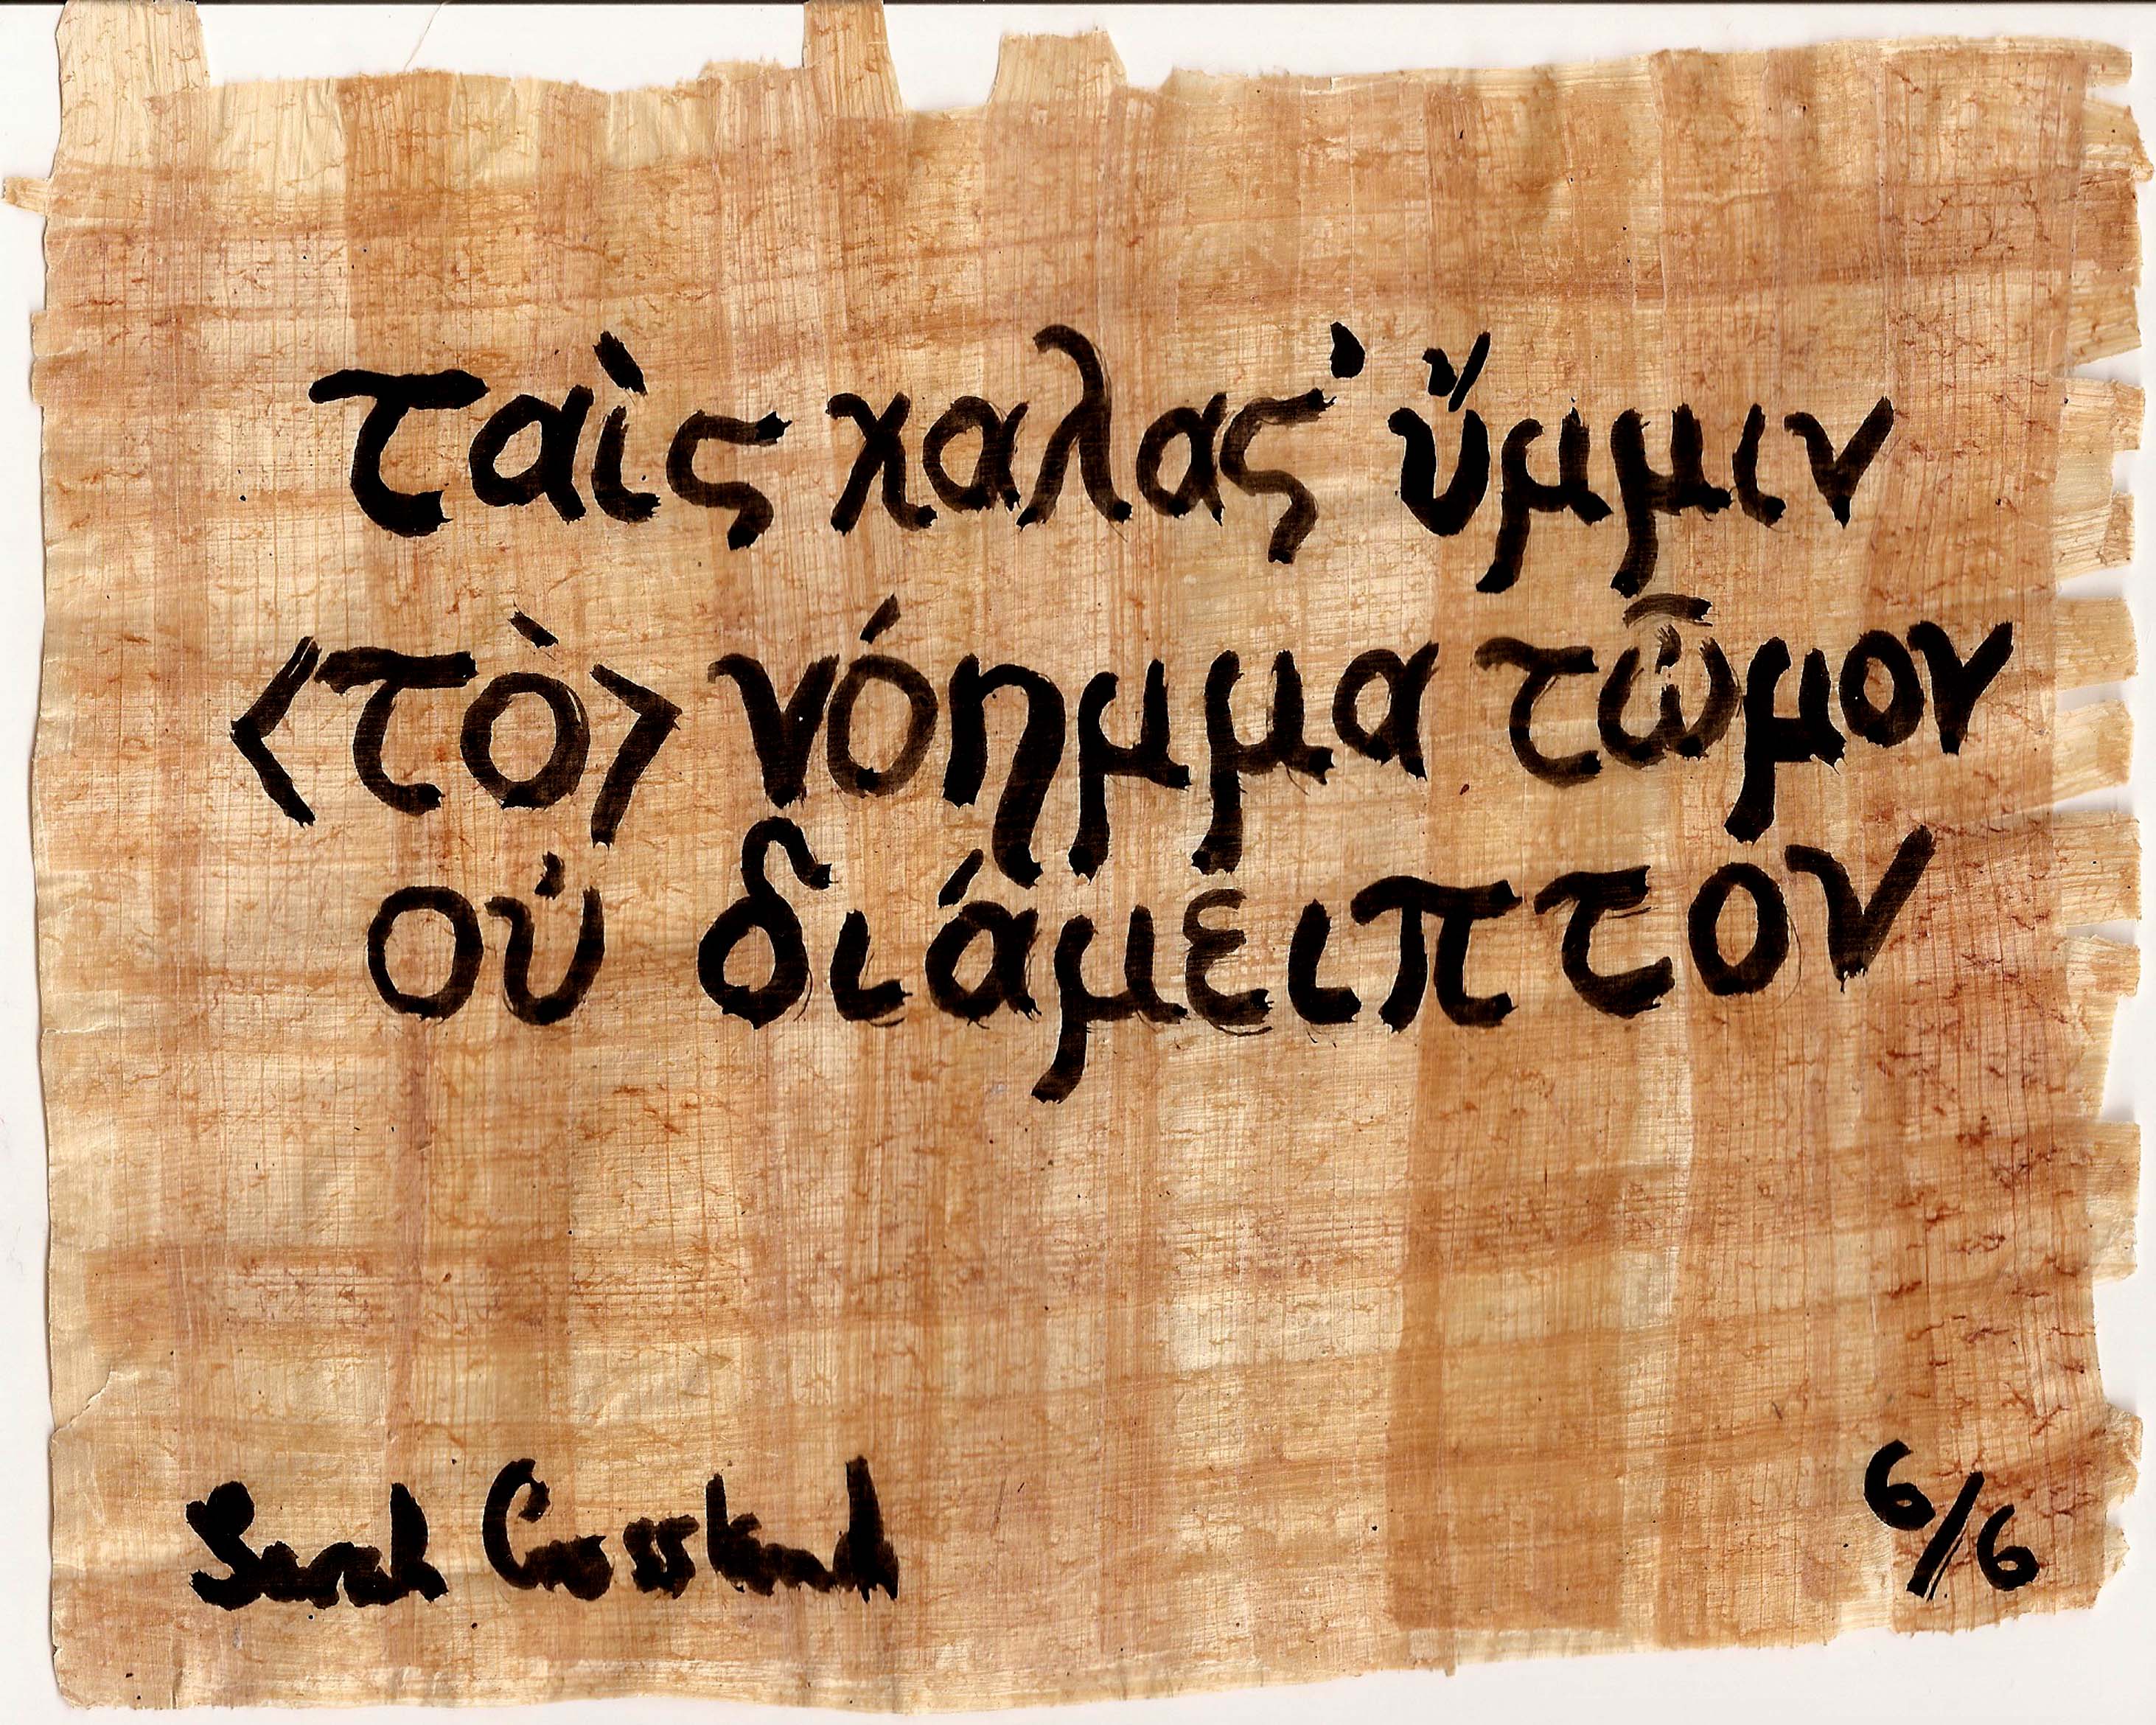 ταὶς χαλας᾽ ὔμμιν
⟨τὸ⟩ νόημμα τὦμον
οὐ διάμειπτον
Sarah Crossland
6/6